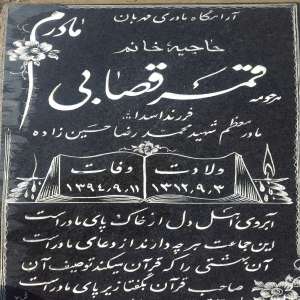 آرامگاه مادری مهربان
مادرم
حاجیه خانم
مرحومه قمر قصابی
فرزند اسدالله
مادر معظم شهید محمد رضا حسین زاده
ولادت
۱۳۱۲,۹,۳
وفات
۱۳۹۴,۹,۱۱
آبروی اهل دل از خاک پای مادر است
این جماعت هر چه دارند از دعای مادر است
آن بهشتی را که قرآن میکند توصیف آن
صاحب قرآن بگفت زیر پای مادر است